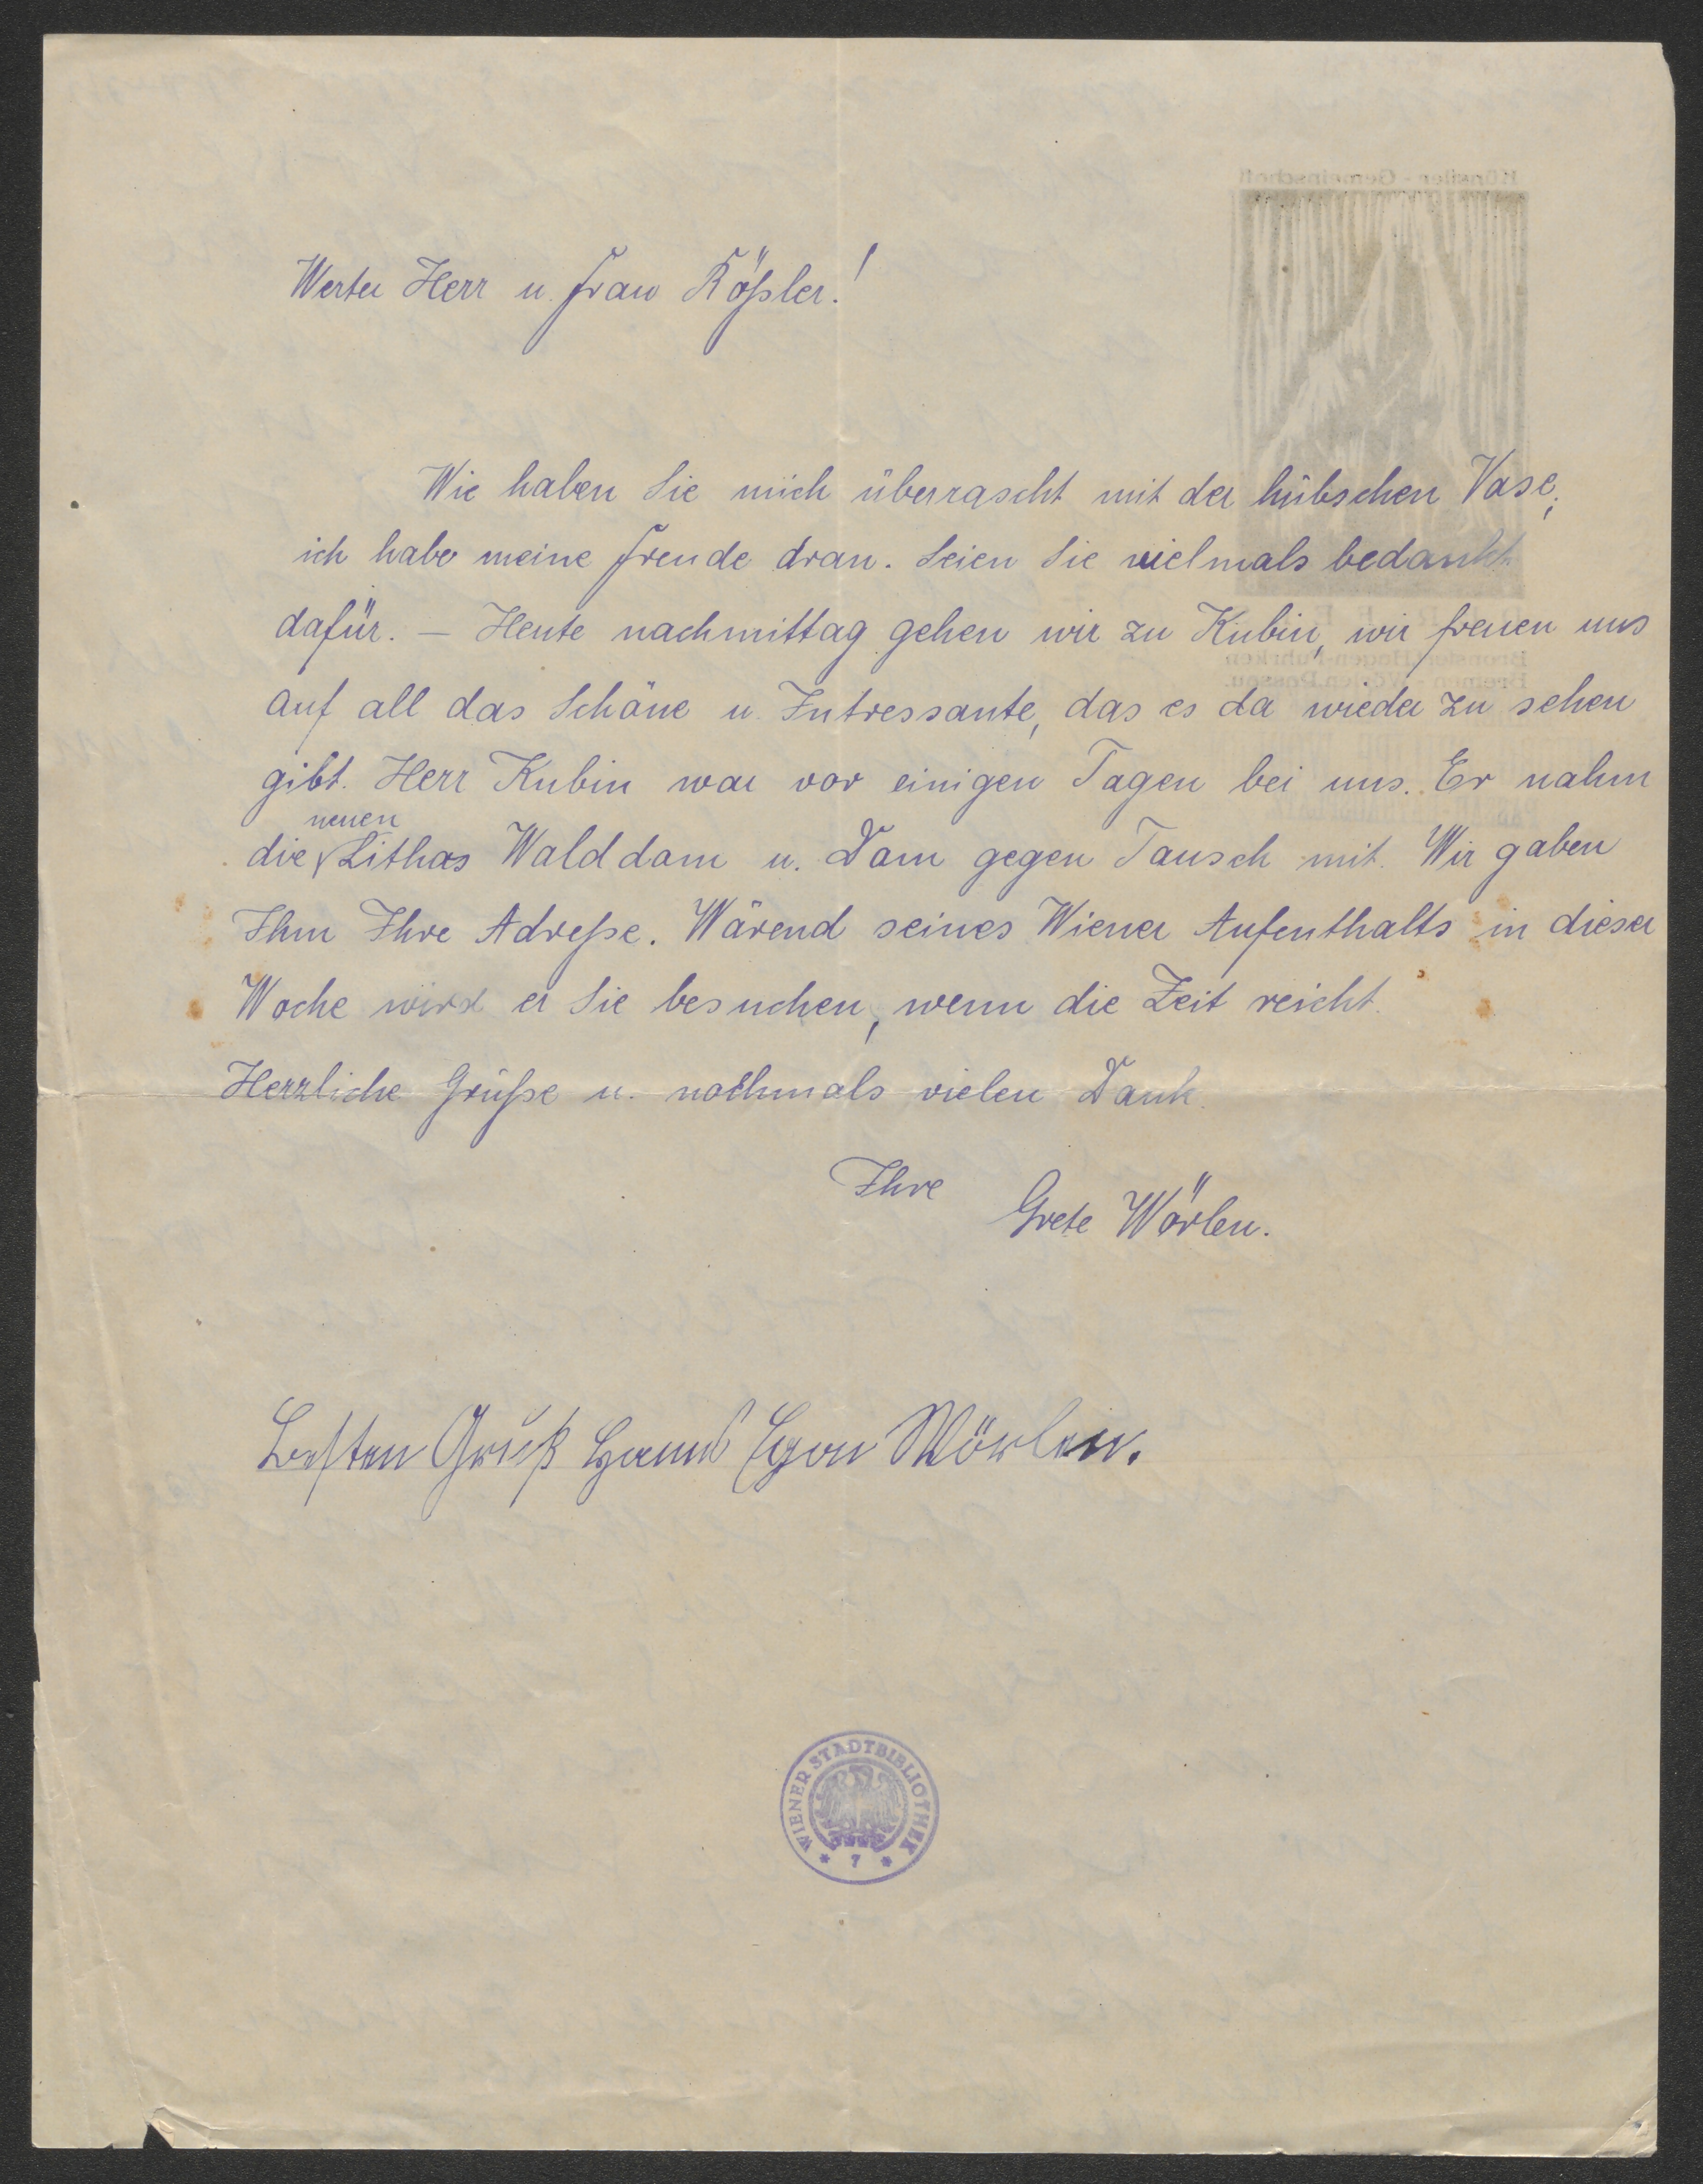 Werter Herr u. Frau Rößler!
Wie haben Sie mich überrascht mit der hübschen Vase,
ich habe meine Freude dran. Seien Sie vielmals bedankt
dafür. – Heute nachmittag gehen wir zu Kubin, wir freuen uns
auf all das Schöne u. Intressante, das es da wieder zu sehen
gibt. Herr Kubin war vor einigen Tagen bei uns. Er nahm
neuen
die Lithos Walddom u. Dom gegen Tausch mit. Wir gaben
Ihm Ihre Adreße. Wärend seines Wiener Aufenthalts in dieser
Woche wird er Sie besuchen, wenn die Zeit reicht.
Herzliche Grüße u. nochmals vielen Dank.
Ihre Grete Wörlen.
Besten Gruß Hanns Egon Wörlen.
WIENER STADTBIBLIOTHEK
* 7 *